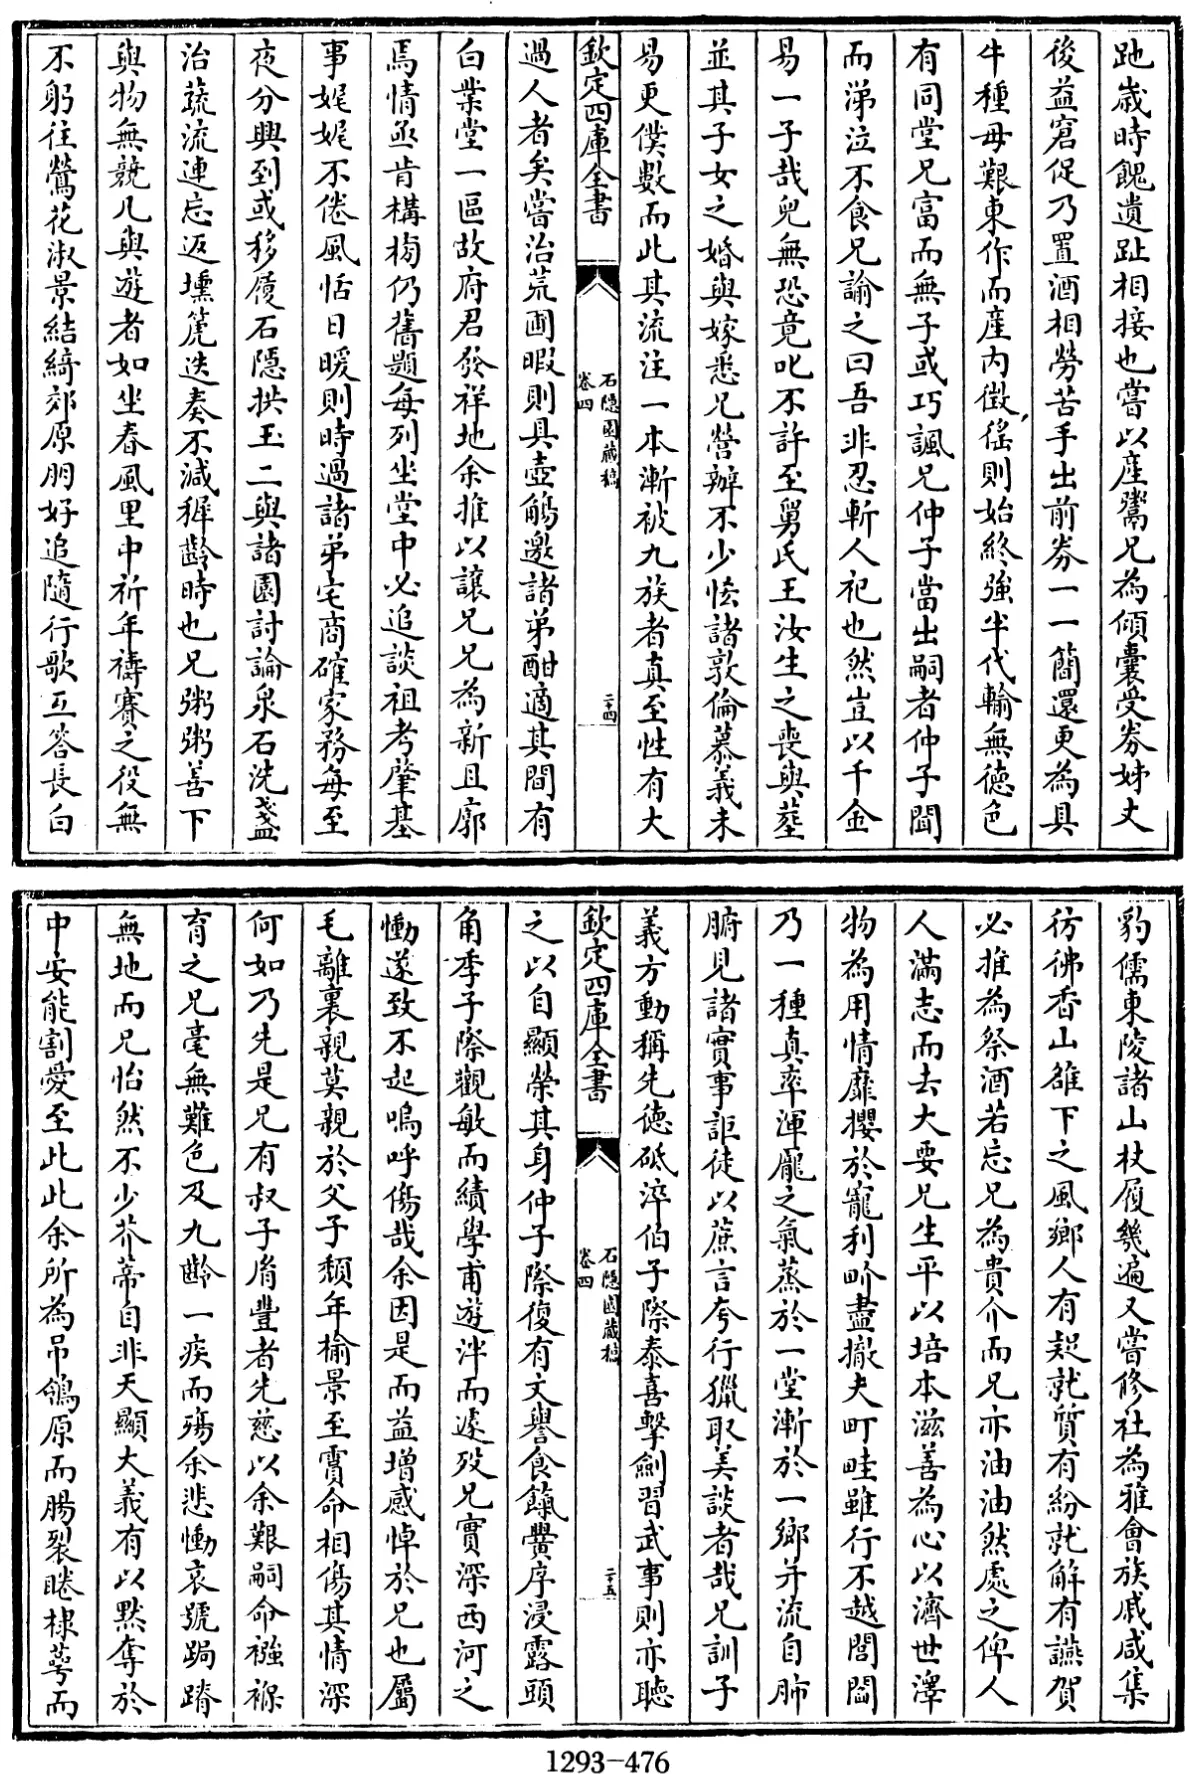 跎歲時餽遺趾相接也嘗以産鬻兄為傾囊受券姊丈
後益窘促乃置酒相勞苦手出前券一一簡還更為具
牛種毋艱東作而産内徴徭則始終強半代輸無徳色
有同堂兄富而無子或巧諷兄仲子當出嗣者仲子聞
而涕泣不食兄諭之曰吾非忍斬人祀也然豈以千金
易一子哉兒無恐竟叱不許至舅氏王汝生之喪與塟
並其子女之婚與嫁悉兄營辦不少恡諸敦倫慕義未
易更僕數而此其流注一本漸被九族者真至性有大
欽定四庫全書
石隠園藏稿
卷四
二十四
過人者矣嘗治荒圃暇則具壺觴邀諸弟酣適其間有
白業堂一區故府君發祥地余推以讓兄兄為新且廓
焉情亟肯構榜仍舊題每列坐堂中必追談祖考肇基
事娓娓不倦風恬日暖則時過諸弟宅商確家務每至
夜分興到或移屨石隠拱玉二與諸園討論泉石洗盞
治蔬流連忘返壎箎迭奏不減稺齡時也兄粥粥善下
與物無競凡與遊者如坐春風里中祈年禱賽之役無
不躬往鶯花淑景結綺郊原朋好追隨行歌互答長白
豹儒東陵諸山杖屨幾遍又嘗修社為雅會族戚咸集
彷彿香山雒下之風鄉人有疑就質有紛就解有讌賀
必推為祭酒若忘兄為貴介而兄亦油油然處之俾人
人滿志而去大要兄生平以培本滋善為心以濟世澤
物為用情靡攖於寵利畍盡撤夫町畦雖行不越閭閻
乃一種真率渾龎之氣蒸於一堂漸於一鄉并流自肺
腑見諸實事詎徒以蔗言夸行獵取美談者哉兄訓子
義方動稱先徳砥淬伯子際泰喜擊劍習武事則亦聽
欽定四庫全書
石隠園藏稿
卷四
二十五
之以自顯榮其身仲子際復有文譽食餼黌序浸露頭
角季子際觀敏而績學甫遊泮而遽歿兄實深西河之
慟遂致不起嗚呼傷哉余因是而益增感悼於兄也屬
毛離裏親莫親於父子頽年榆景至霣命相傷其情深
何如乃先是兄有叔子胤豐者先慈以余艱嗣命襁褓
育之兄毫無難色及九齡一疾而殤余悲慟哀號跼蹐
無地而兄怡然不少芥蒂自非天顯大義有以默奪於
中安能割愛至此此余所為吊鴒原而腸裂睠棣萼而
1293-476